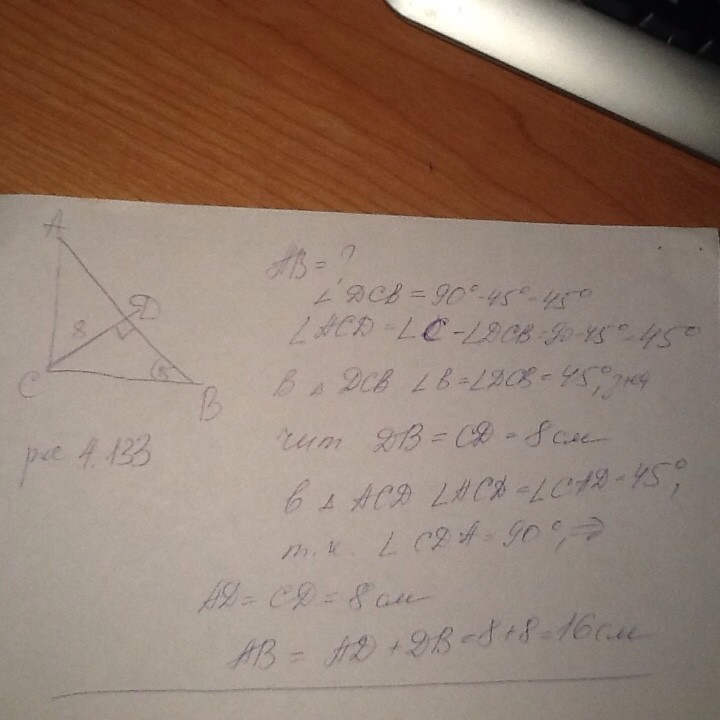 A
D
8
C
45
B
рис 4.133
AB = ?
∠DCB = 90° - 45° = 45°
∠ACD = ∠C - ∠DCB = 90 - 45° = 45°
В △ DCB ∠B = ∠DCB = 45°, зна
чит DB = CD = 8 см
в △ ACD ∠ACD = ∠CAD = 45°,
т.к. ∠CDA = 90°, ⇒
AD = CD = 8 см
AB = AD + DB = 8 + 8 = 16 см